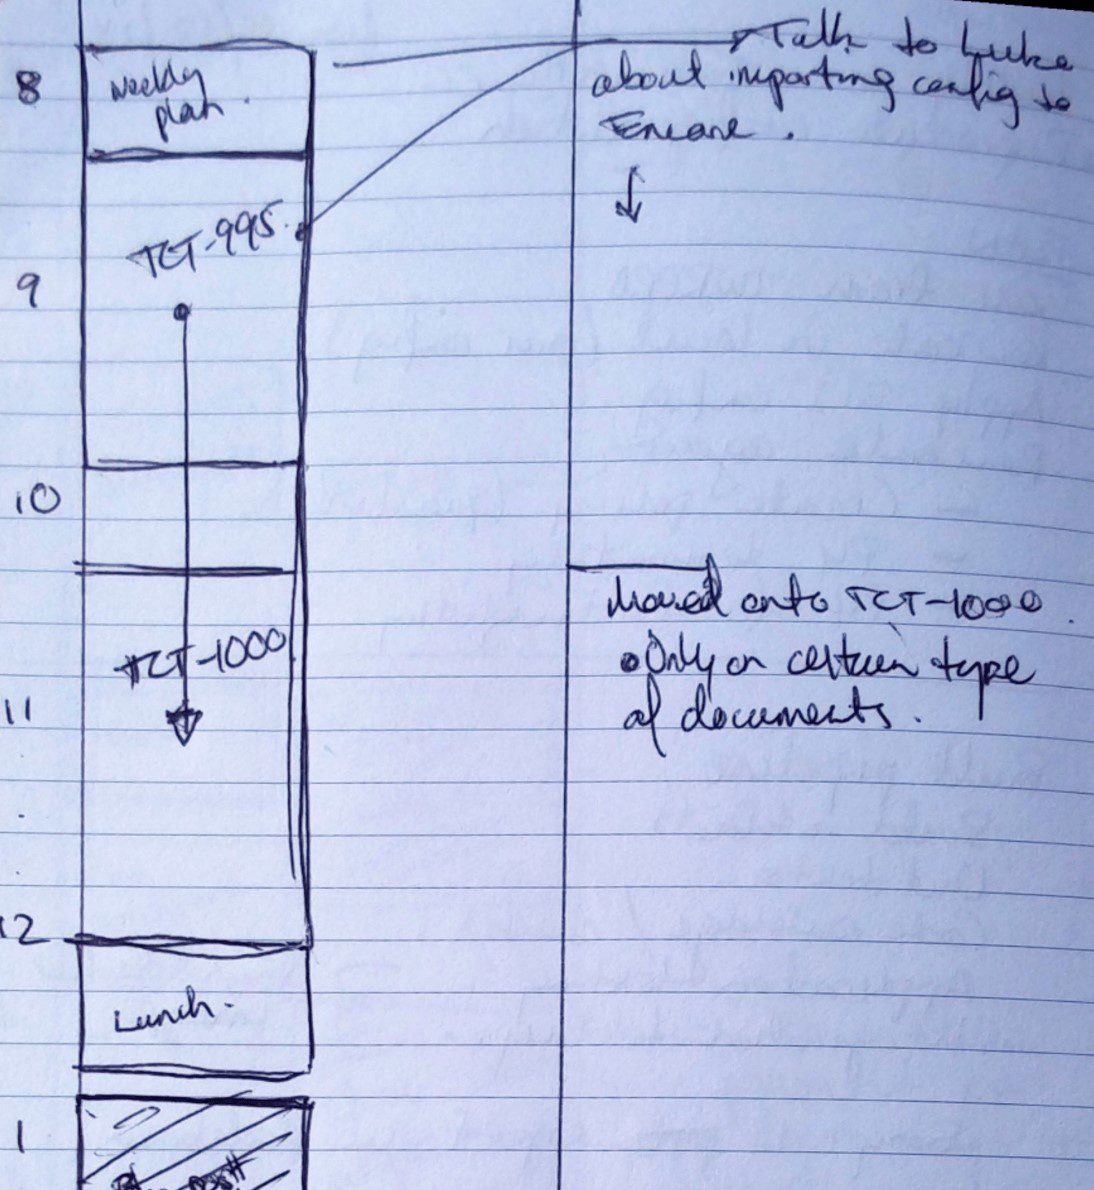 8
Weekly
plan.
Talk to Luke
about importing config to
TCT-995.
9
10
Moved onto TCT-1000.
• Only on certain type
of documents.
TCT-1000
11
12
Lunch.
1